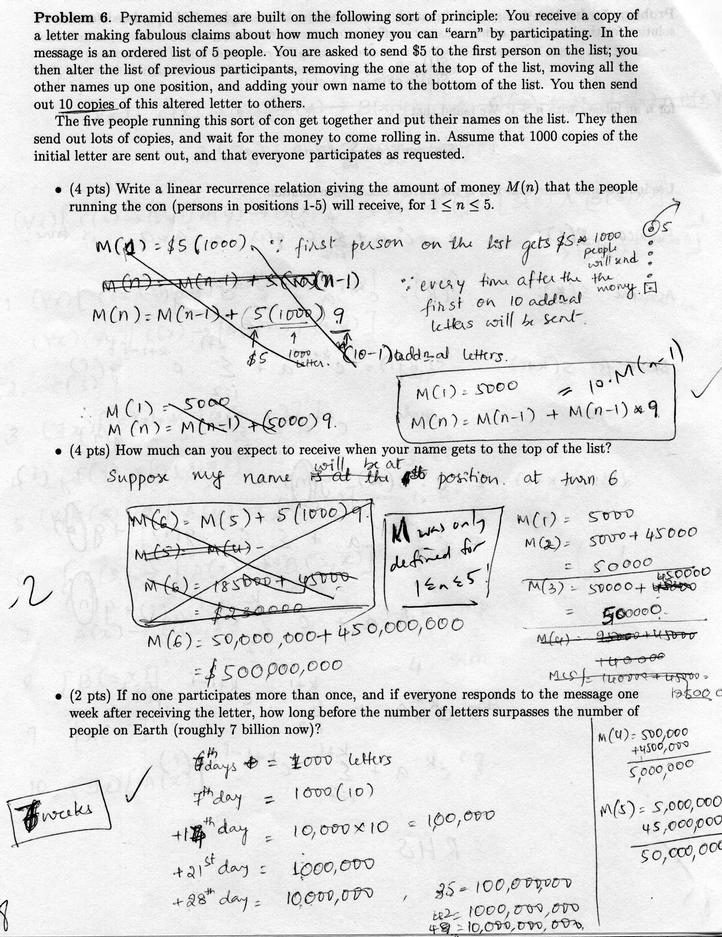 Problem 6. Pyramid schemes are built on the following sort of principle: You receive a copy of
a letter making fabulous claims about how much money you can “earn” by participating. In the
message is an ordered list of 5 people. You are asked to send $5 to the first person on the list; you
then alter the list of previous participants, removing the one at the top of the list, moving all the
other names up one position, and adding your own name to the bottom of the list. You then send
out 10 copies of this altered letter to others.
The five people running this sort of con get together and put their names on the list. They then
send out lots of copies, and wait for the money to come rolling in. Assume that 1000 copies of the
initial letter are sent out, and that everyone participates as requested.
• (4 pts) Write a linear recurrence relation giving the amount of money M(n) that the people
running the con (persons in positions 1-5) will receive, for 1 ≤ n ≤ 5.
M(1) = $5(1000), ∵ first person on the list gets $5 * 1000
people
will send
the
money.
5
M(n) = M(n-1) + 5(n-1)
∵ every time after the
first on 10 addnal
letters will be sent.
M(n) = M(n-1) + (5(1000)) 9
$5
1000
letter.
(10-1) addnal letters.
M(1) = 5000
= 10·M(n-1)
M(n) = M(n-1) + M(n-1) * 9
∴ M(1) = 5000
M(n) = M(n-1) + (5000) 9.
• (4 pts) How much can you expect to receive when your name gets to the top of the list?
Suppose my name is at the will be at 1st position. at turn 6
M(6) = M(5) + 5(1000) 9.
M(5) = M(4) -
M(6) = 185000 + 45000
= $230000
M was only
defined for
1≤n≤5!
M(1) = 5000
M(2) = 5000 + 45000
= 50000
M(3) = 50000 + 450000
= 500000.
M(4) = 95000 + 45000
140000
M(5) = 140000 + 45000.
-2
M(6) = 50,000,000 + 450,000,000
= $500,000,000
• (2 pts) If no one participates more than once, and if everyone responds to the message one
week after receiving the letter, how long before the number of letters surpasses the number of
people on Earth (roughly 7 billion now)?
M(4) = 500,000
+4500,000
5,000,000
M(5) = 5,000,000
45,000,000
50,000,000
days = 1000 letters
7th day = 1000(10)
+14th day = 10,000 × 10 = 100,000
+21st day = 1,000,000
+28th day = 10,000,000,
35 = 100,000,000
42 = 1000,000,000
49 = 10,000,000,000.
7 weeks
8